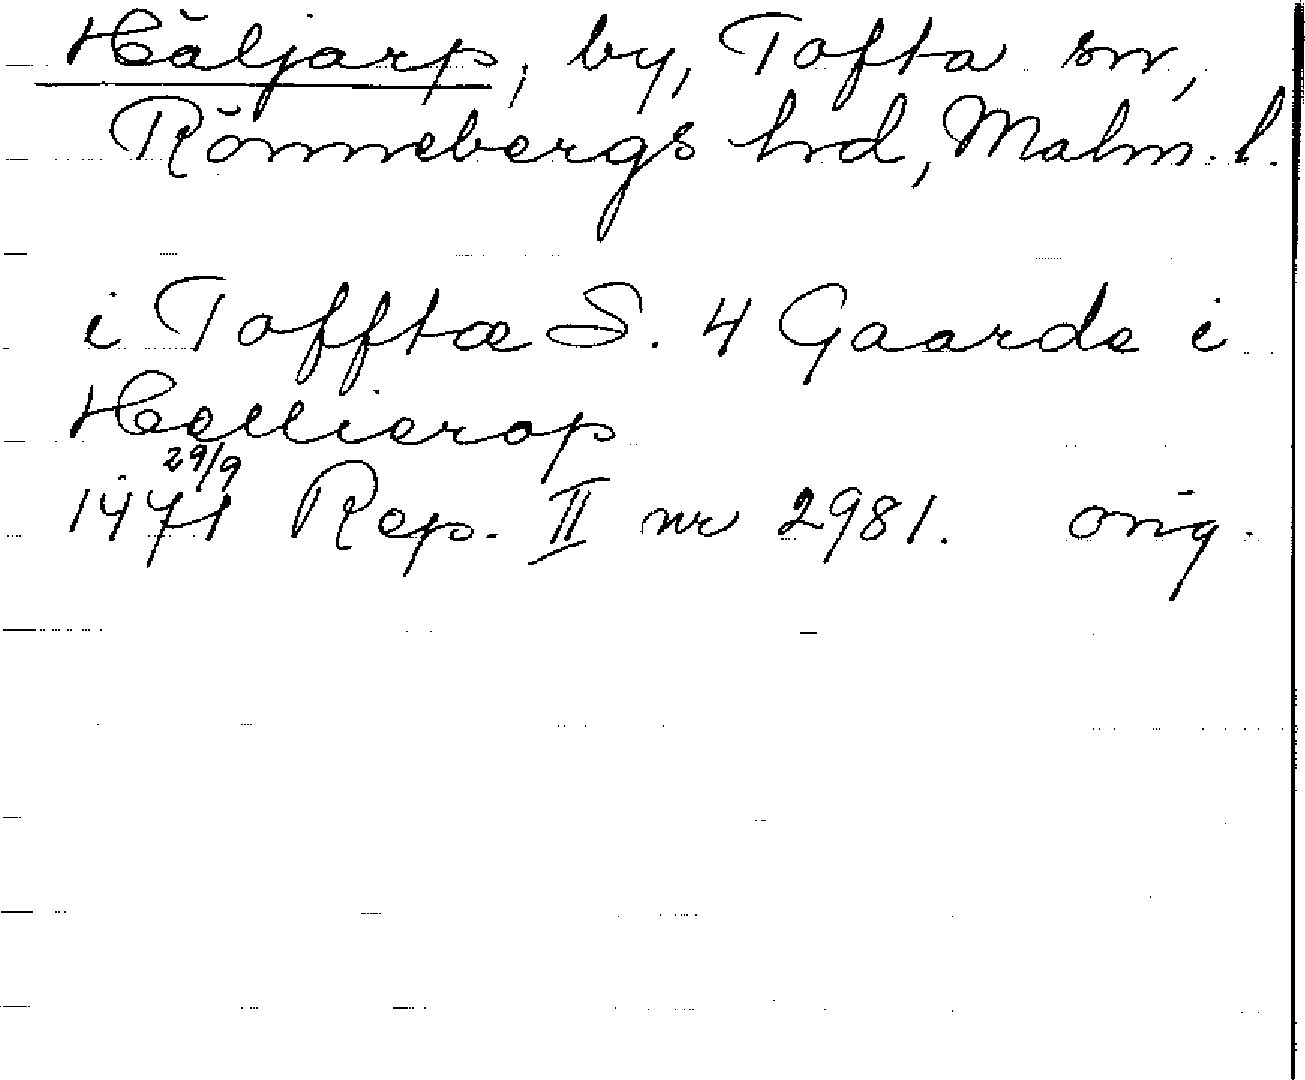 Häljarp, by, Tofta sn,
Rönnebergs hrd, Malm. l.
i Tofftæ S. 4 Gaarde i
Hellierop
29/9
1471 Rep. II nr 2981. orig.